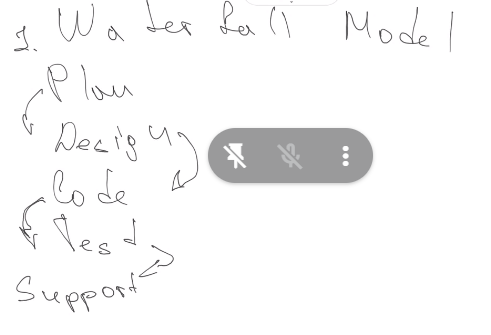 1. Waterfall Model
Plan
Design
Code
Test
Support